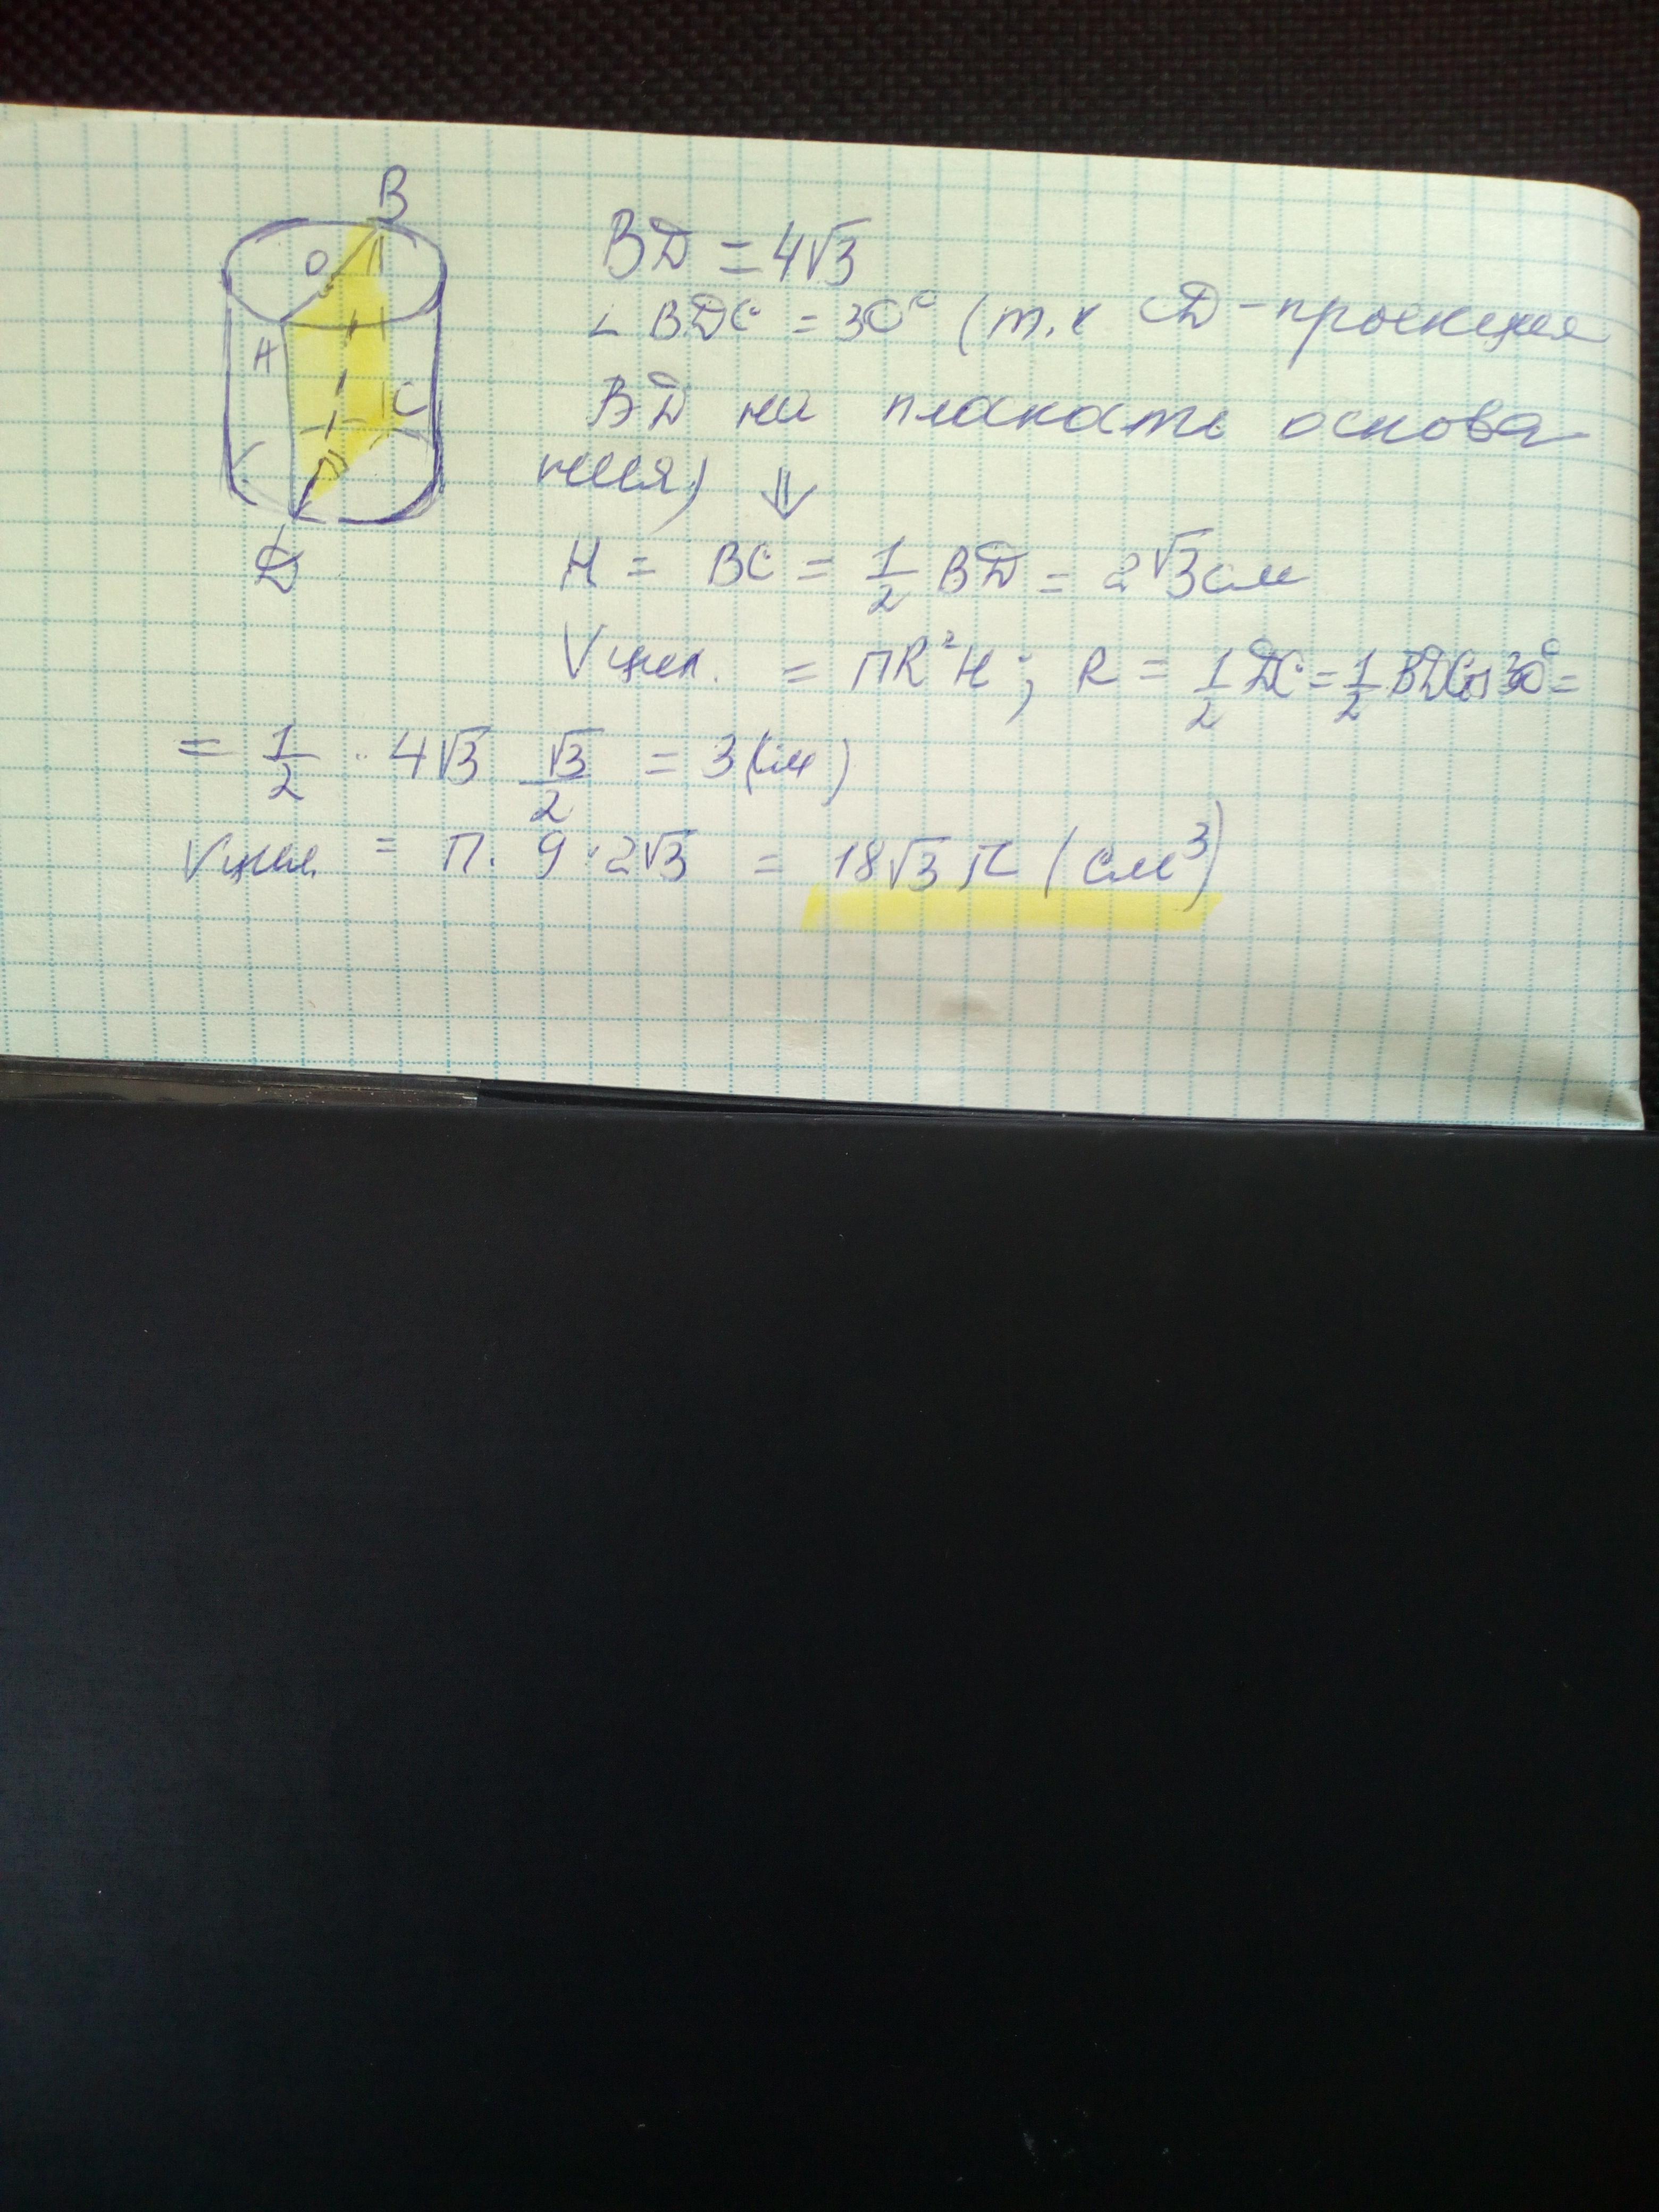 B
O
A
C
D
BD = 4√3
∠ BDC = 30° (т.к CD - проекция
BD на плоскость основа
ния) ⇓
H = BC = 1/2 BD = 2√3 см
Vцил. = ПR²H; R = 1/2 DC = 1/2 BD cos 30° =
= 1/2 · 4√3 √3/2 = 3 (см)
Vцил. = П · 9 · 2√3 = 18√3 π (см³)